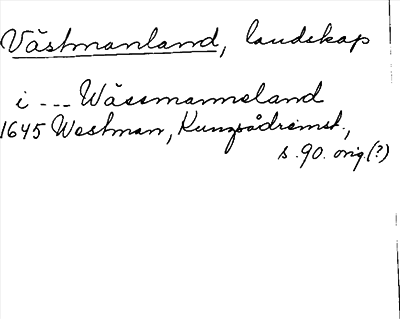 Västmanland, landskap
i --- Wässmanneland
1645 Westman, Kungsådremst.,
s. 90. orig. (?)